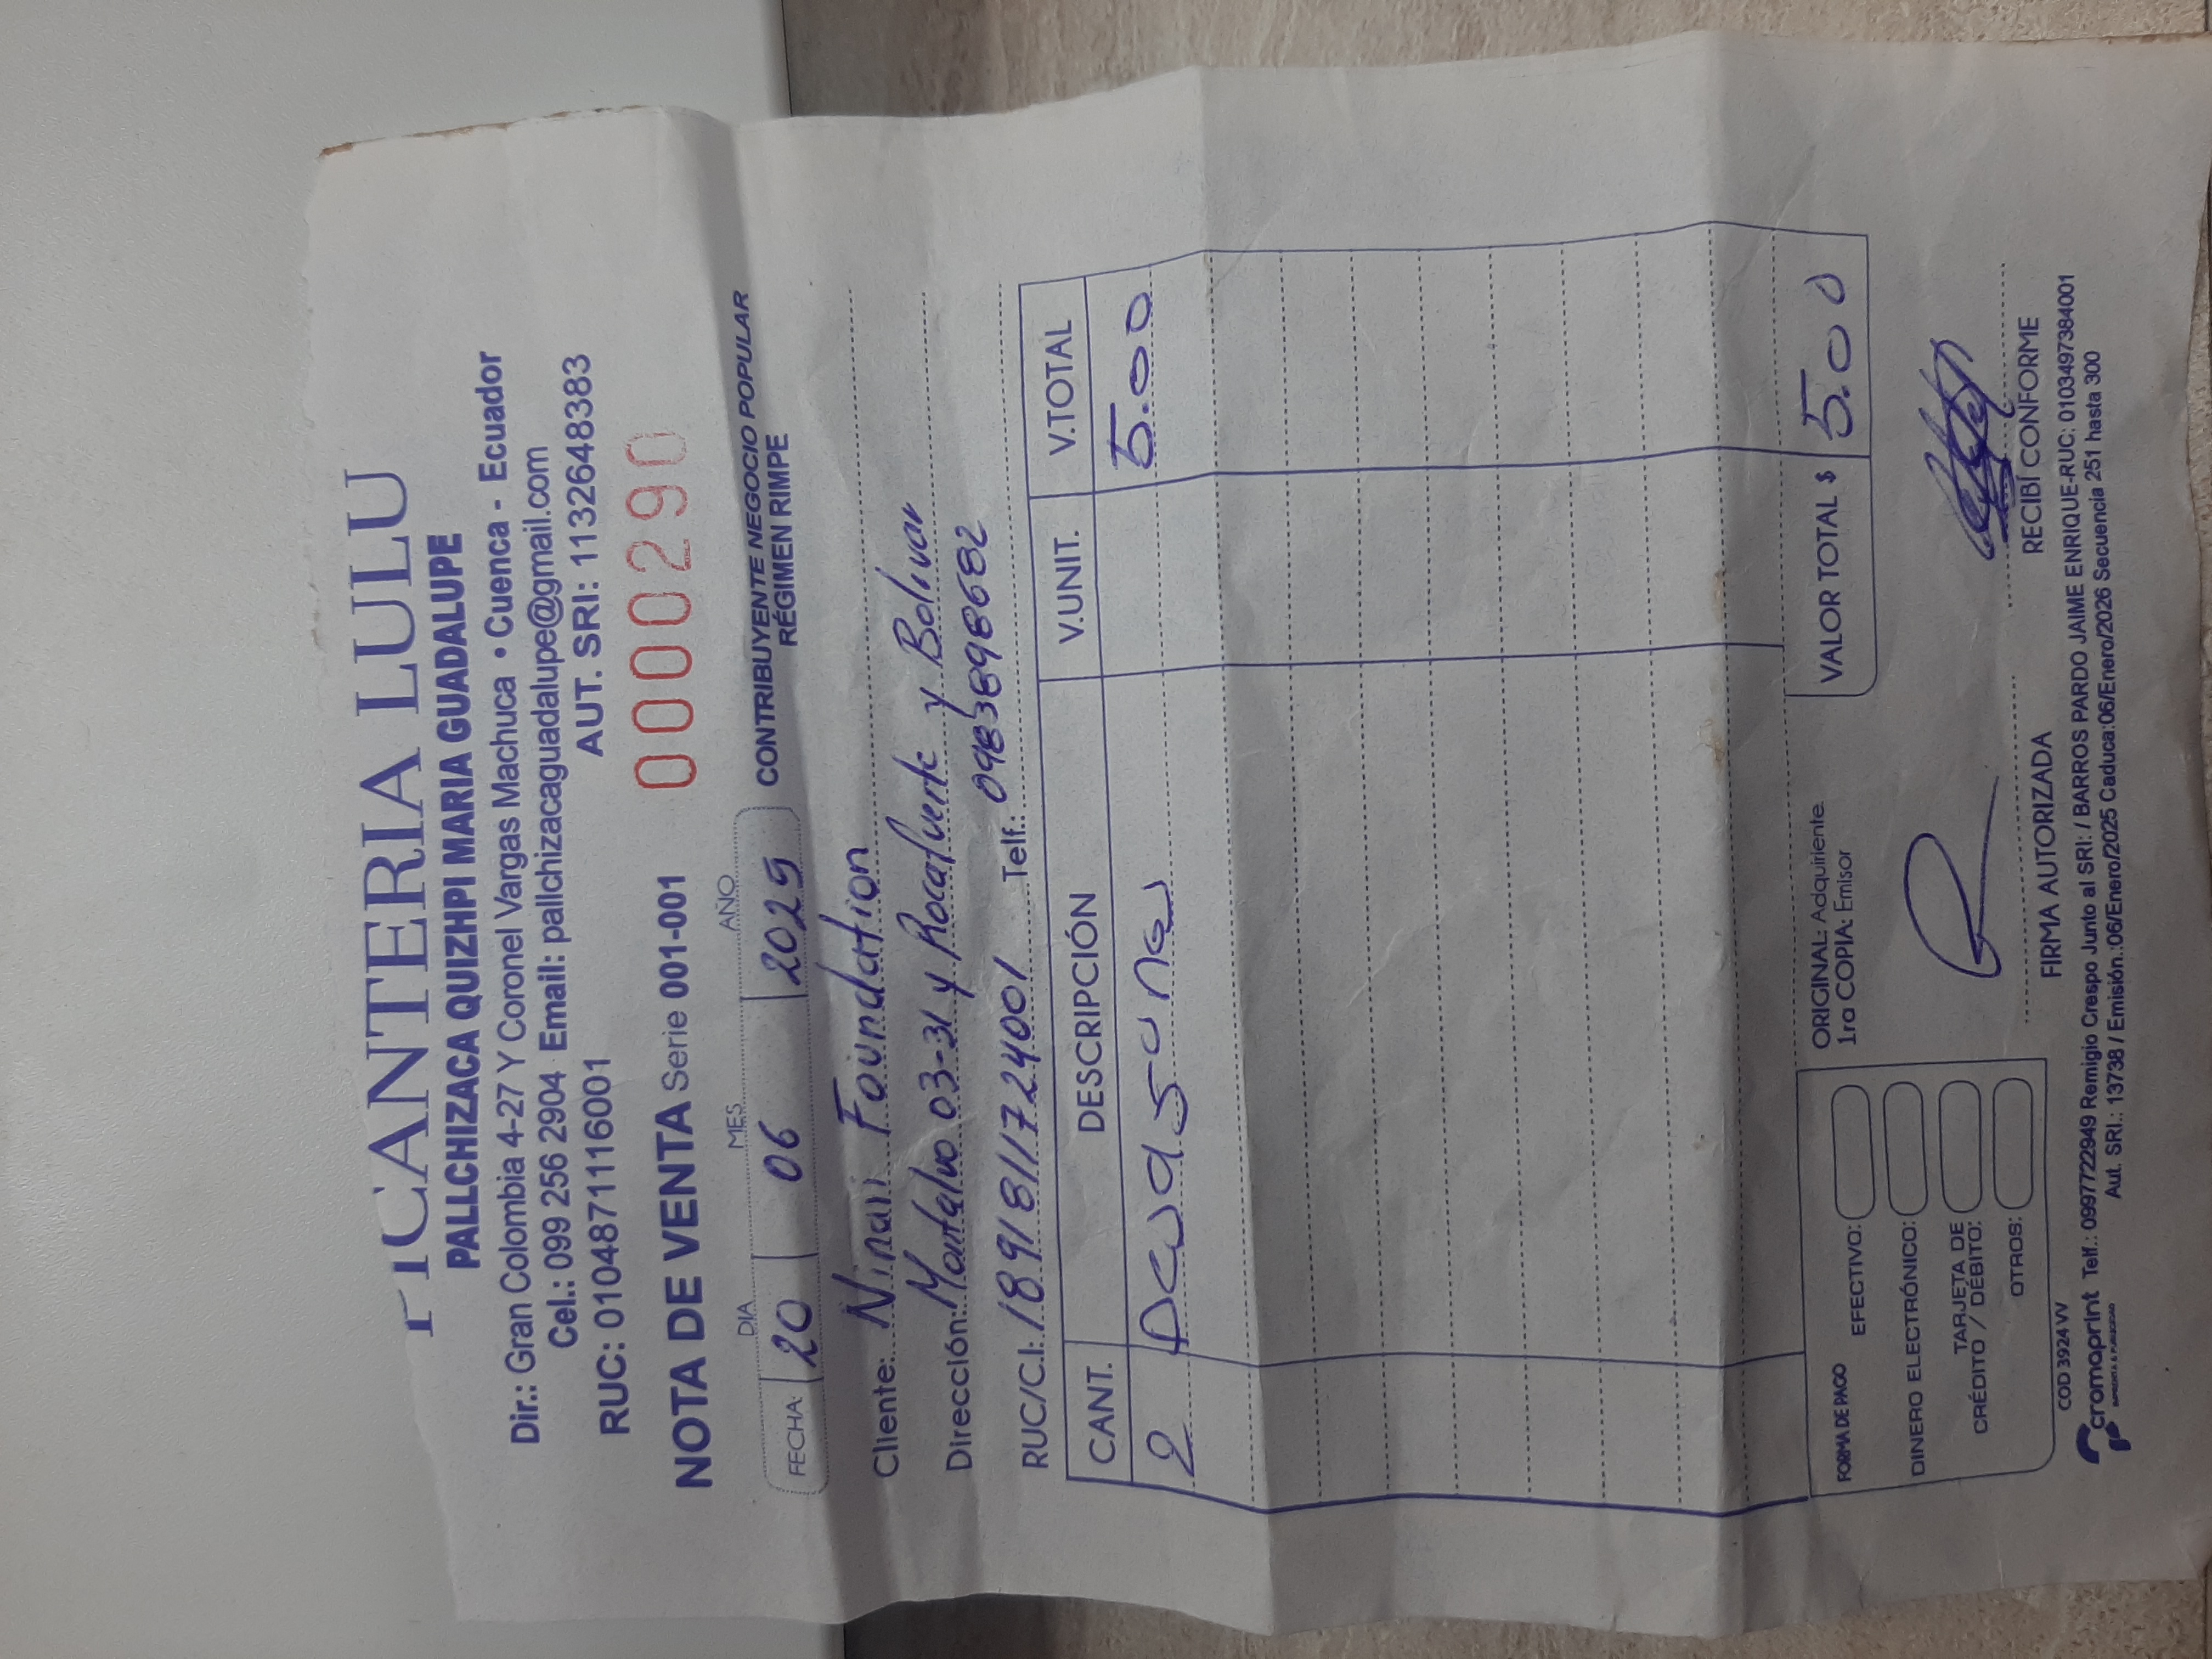 PICANTERIA LULU
PALLCHIZACA QUIZHPI MARIA GUADALUPE
Dir.: Gran Colombia 4-27 Y Coronel Vargas Machuca • Cuenca - Ecuador
Cel.: 099 256 2904 Email: pallchizacaguadalupe@gmail.com
RUC: 0104871116001 AUT. SRI: 1132648383
NOTA DE VENTA Serie 001-001 0000290
DIA MES AÑO
FECHA: 20 06 2025
CONTRIBUYENTE NEGOCIO POPULAR
RÉGIMEN RIMPE
Cliente: Foundation
Dirección: Montalvo 03-31 y Rocafuerte y Bolivar
RUC/C.I: 1891811724001 Telf.: 0983898682
CANT. DESCRIPCIÓN V.UNIT. V.TOTAL
2 5.00
FORMA DE PAGO
EFECTIVO:
DINERO ELECTRÓNICO:
TARJETA DE
CRÉDITO / DÉBITO:
OTROS:
ORIGINAL: Adquiriente
1ra COPIA: Emisor
VALOR TOTAL $ 5.00
FIRMA AUTORIZADA
RECIBÍ CONFORME
COD 3924 VV
cromaprint
IMPRENTA & PUBLICIDAD
Telf.: 0997722949 Remigio Crespo Junto al SRI: / BARROS PARDO JAIME ENRIQUE-RUC: 0103497384001
Aut. SRI.: 13738 / Emisión.:06/Enero/2025 Caduca:06/Enero/2026 Secuencia 251 hasta 300